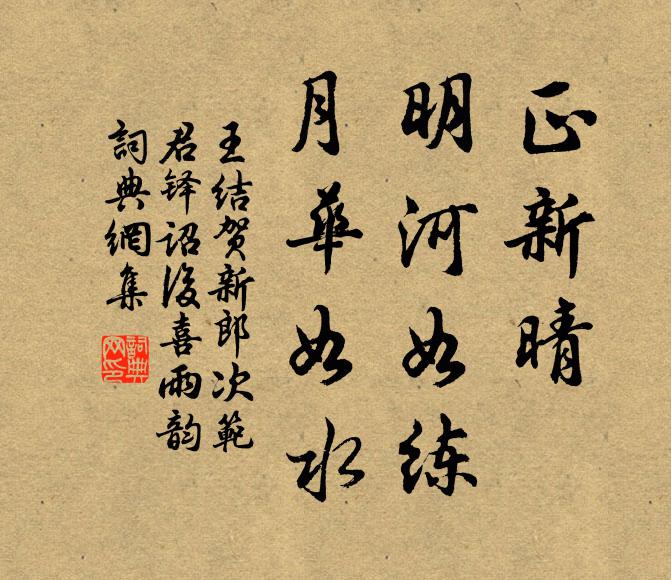 正新晴
明河如练
月華如水
王结贺新郎次範
君铎诏後喜雨韵
詞典網集
詞典网印